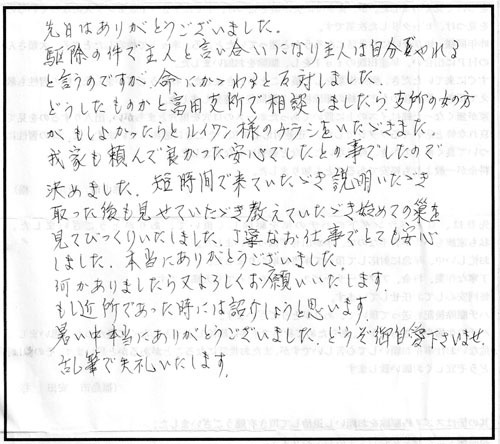 先日はありがとうございました。
駆除の件で主人と言い合いになり主人は自分でやれる
と言うのですが、命にかかわると反対しました。
どうしたものかと高田支所で相談しましたら支所の女の方
が、もしよかったらとルイワン様のチラシをいただきました。
我家も頼んで良かった安心でしたとの事でしたので
決めました。短時間で来ていただき説明いただき
取った後も見せていただき教えていただき始めての巣を
見てびっくりいたしました。丁寧なお仕事でとても安心
しました。本当にありがとうございました。
何かありましたら又よろしくお願いいたします
もし近所であった時には紹介しようと思います。
暑い中本当にありがとうございました。どうぞ御自愛下さいませ
乱筆で失礼いたします。